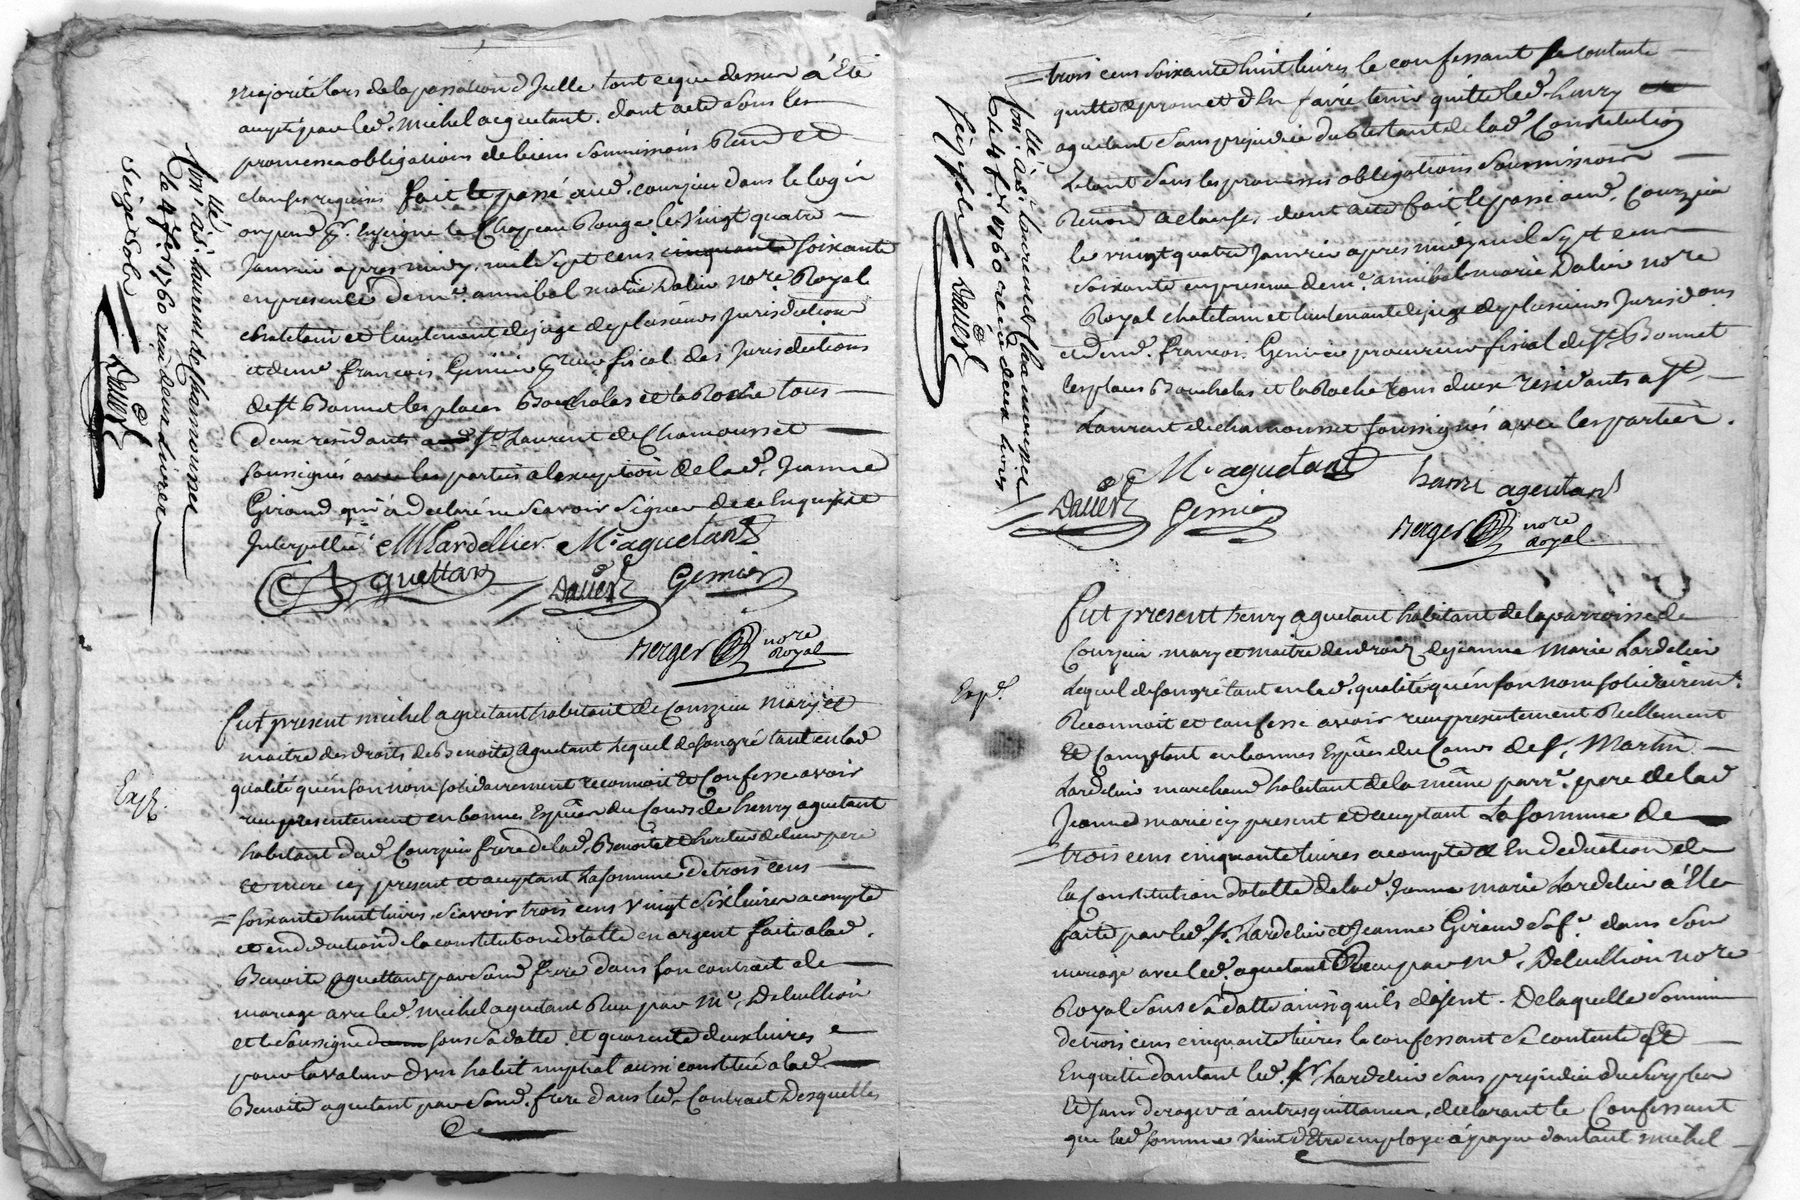 majorité lors de la passation d'Icelle tout ce que dessus a été
accepté par led. michel aguetant. dont acte sous les
promesses obligations de biens soumissions Renon et
clauses requises fait et passé aud. courzieu dans le logis
ou pend pr. Enseigne le Chapeau Rouge le vingt quatre
Janvier apres midy, mil sept cens cinquante soixante
en presence de me. annibal marie Daliere nore. Royal
chatelain et lieutenant de juge de plusieurs jurisdictions
et de me francois Gemier preur. fiscal des Jurisdictions
de st Bonnet les places Bouchalas et la Roche tous
deux residants a st. Laurent de Chamousset
soussignés avec les parties a l'exception de lad. Jeanne
Giraud qui a declaré ne scavoir signer de ce Enquise
Interpellée. MLardellier M. aguetant
Aguettan Gemier
Berger nore Royal
Con. a st. laurent de chamousset
le 4 f. 1760 reçu deux livres
seize sols
Exp.
fut present michel aguetant habitant de Courzieu mary et
maitre des droits de Benoite Aguetant lequel de son gré tant en lad
qualité qu'en son nom solidairement reconnoit et Confesse avoir
reçu presentement en bonnes Espèces du Cours de henry aguetant
habitant dud. Courzieu frere de lad. Benoite et heritier de leur pere
et mere icy present et acceptant la somme de trois cens
soixante huit livres, scavoir trois cens vingt six livres a compte
et en deduction de la constitution dotalle en argent faite a lad.
Benoite aguettant par sond. frere dans son contrat de
mariage avec led. michel aguetant Reçu par Me. Delullion
et le soussigné sous sa datte et quarente deux livres
pour la valeur d'un habit nuptial aussi constitué a lad.
Benoite aguetant par sond. frere dans led. Contract desquelles
trois cens soixante huit livres le confessant se contente
quitte et promet d'En faire tenir quitte led. henry
aguetant sans prejudice du Restant de lad. Constitution
Letout sous les promesses obligations soumissions
Renon et clauses, dont acte fait et passé aud. Courzieu
le vingt quatre Janvier apres midy mil sept cens
soixante en presence de me. annibal marie Daliere nore
Royal chatelain et lieutenant de juge de plusieurs Jurisdons
et de me. francois Gemier procureur fiscal de st. Bonnet
les places Bouchalas et la Roche tous deux residants a st.
Laurent de chamousset soussignés avec les parties.
M. aguetant
henri aguetant
Gemier
Berger nore Royal
Con. a st. Laurent de chamousset
le 4 f. 1760 reçu deux livres
Exp.
fut present henry aguetant habitant de la parroisse de
Courzieu mary et maitre des droits de jeanne Marie Lardelier
Lequel de son gré tant en lad. qualité qu'en son nom solidairemt.
Reconnoit et confesse avoir reçu presentement Reellement
Et Comptant en bonnes Espèces du Cours de sr. Martin
Lardelier marchand habitant de la même parr. pere de lad
Jeanne marie icy present et acceptant La somme de
trois cens cinquante livres a compte et En deduction de
la Constitution dotalle de lad. Jeanne marie Lardelier a Elle
faite par led. sr. Lardelier et Jeanne Giraud sa fe. dans son
mariage avec led. aguetant Reçu par me. Delullion nore
Royal sous sa datte ainsi qu'ils disent. De laquelle somme
de trois cens cinquante livres le confessant se contente Et
En quitte d'autant led. sr. Lardelier sans prejudice du surplus
Et sans deroger a autres quittances, declarant le Confessant
que lad. somme vient d'Etre employé a payer d'autant michel